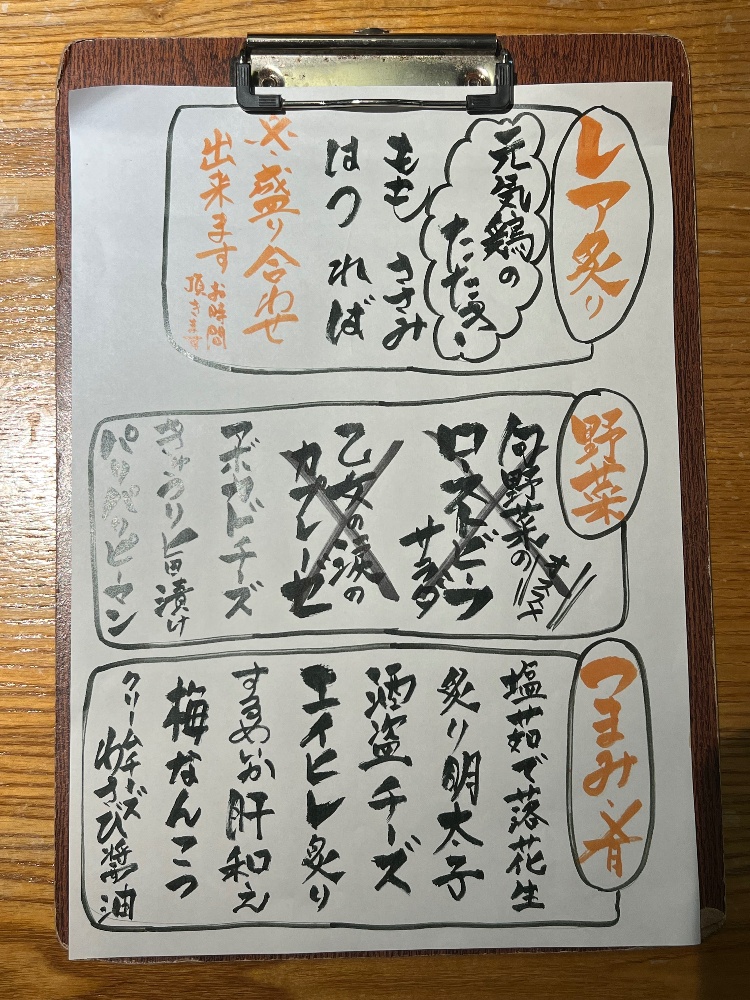 レア炙り
元気鶏の
たたき
もも ささみ
はつ れば
※盛り合わせ
出来ます
お時間
頂きます
野菜
旬野菜の
ローストビーフ
サラダ
オススメ
乙女の涙の
カプレーゼ
アボカドチーズ
きゅうり旨漬け
パリパリピーマン
つまみ・肴
塩茹で落花生
炙り明太子
酒盗チーズ
エイヒレ炙り
するめいか肝和え
梅なんこつ
クリームチーズ
わさび醤油